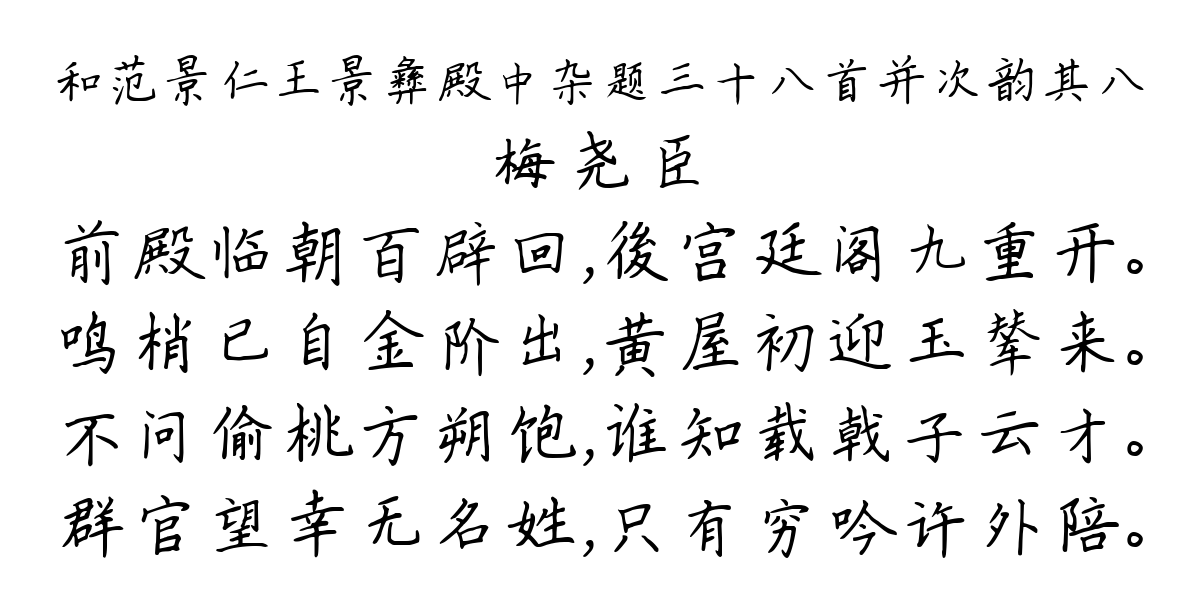 和范景仁王景彝殿中杂题三十八首并次韵其八
梅尧臣
前殿临朝百辟回,後宫廷阁九重开。
鸣梢已自金阶出,黄屋初迎玉辇来。
不问偷桃方朔饱,谁知载戟子云才。
群官望幸无名姓,只有穷吟许外陪。